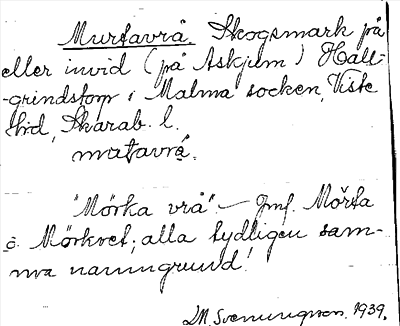 Murtavrå. Skogsmark på
eller invid (på Askjum) Hall-
-grindstorp i Malma socken, Viste
hd, Skarab. l.
murtavrå.
"Mörka vrå". – Jmf. Mörta
o. Mörkvet; alla tydligen sam-
ma namngrund!
M. Svenungsson. 1939.